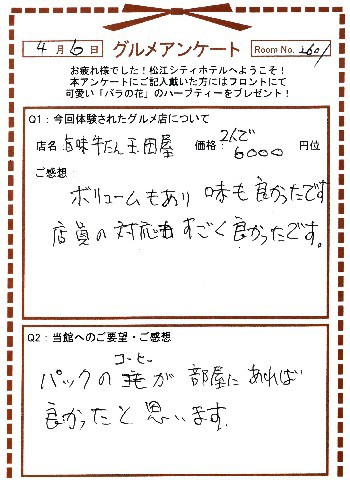 4月6日 グルメアンケート Room No. 2601
お疲れ様でした！松江シティホテルへようこそ！
本アンケートにご記入戴いた方にはフロントにて
可愛い「バラの花」のハーブティーをプレゼント！
Q1：今回体験されたグルメ店について
店名 旨味牛たん 玉田屋 価格： 2人で 6000 円位
ご感想
ボリュームもあり 味も良かったです
店員の対応もすごく良かったです。
Q2：当館へのご要望・ご感想
コーヒー
パックの が 部屋にあれば
良かったと思います.